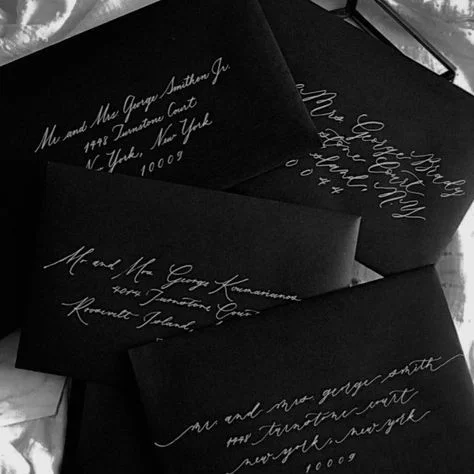 Mr. and Mrs. George Smithen Jr.
4448 Turnstone Court
New York, New York
10009
Mrs George Brady
stone Court
sland, NY
0044
Mr and Mrs George Koumarianos
4044 Turnstone Cour
Roosevelt Island,
mr. and mrs. george smith
4448 turnstone court
new york, new york
10009